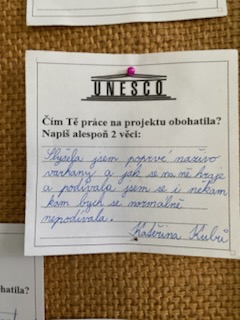 UNESCO
Čím Tě práce na projektu obohatila?
Napiš alespoň 2 věci:
Slyšela jsem poprvé naživo
varhany a jak se na ně hraje
a podívala jsem se i někam
kam bych se normálně
nepodívala.
Kateřina Kubů
hatila?